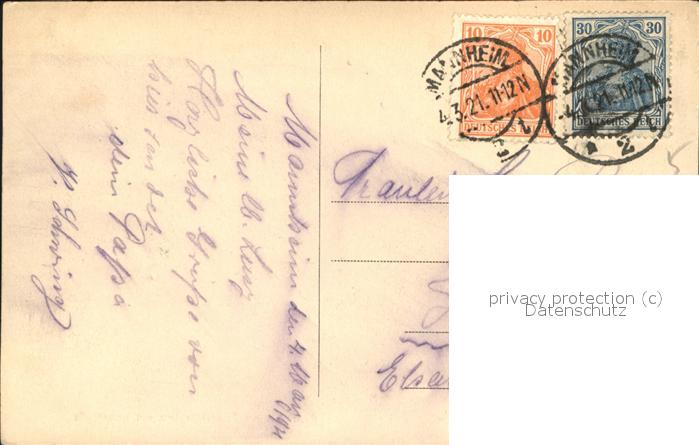 10 10
DEUTSCHES REICH
30 30
DEUTSCHES REICH
MANNHEIM
4.3.21.11-12N
MANNHEIM
2
Mannheim den 4. März
1921
Meine lb. Luise
Herzliche Grüße von
hier sendet
dein Papa
Fräulein
Elsa
privacy protection (c)
Datenschutz